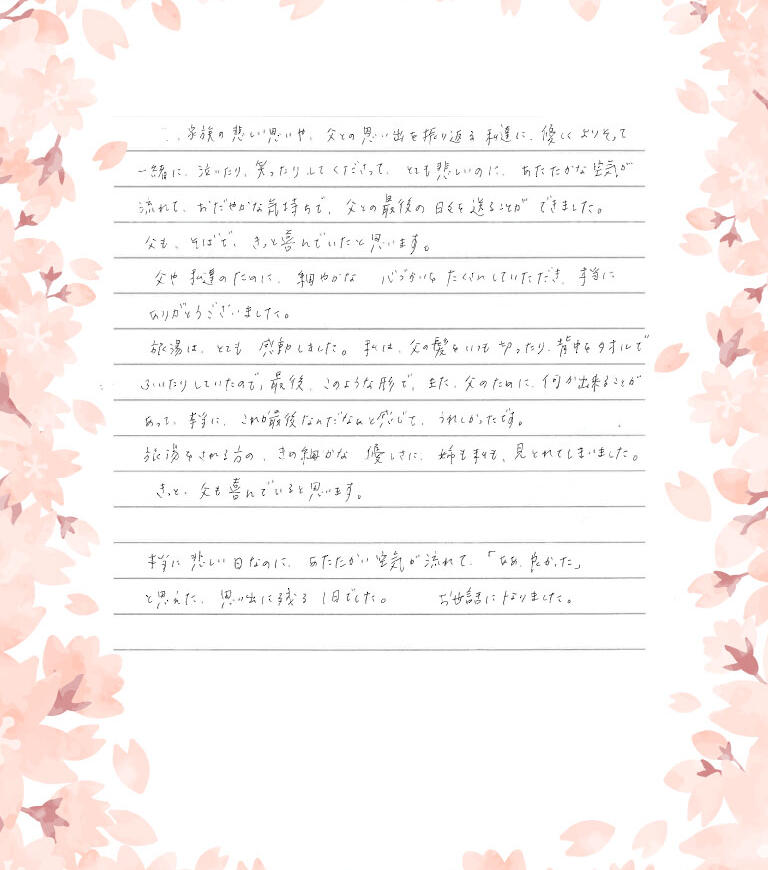 家族の悲しい思いや、父との思い出を振り返る私達に、優しくよりそって
一緒に、泣いたり、笑ったりしてくださって、とても悲しいのに、あたたかな空気が
流れて、おだやかな気持ちで、父との最後の日々を送ることができました。
父も、そばで、きっと喜んでいたと思います。
父や私達のために、細やかな 心づかいをたくさんしていただき、本当に
ありがとうございました。
旅湯は、とても 感動しました。私は、父の髪をいつも切ったり、背中をタオルで
ふいたりしていたので、最後、このような形で、また、父のために、何か出来ることが
あって、本当に、これが最後なんだなぁと感じて、うれしかったです。
旅湯をされる方の、きの細かな 優しさに、姉も私も、見とれてしまいました。
きっと、父も喜んでいると思います。
本当に悲しい日なのに、あたたかい空気が流れて、「なあ、良かった」
と思えた、思い出に残る1日でした。 お世話になりました。